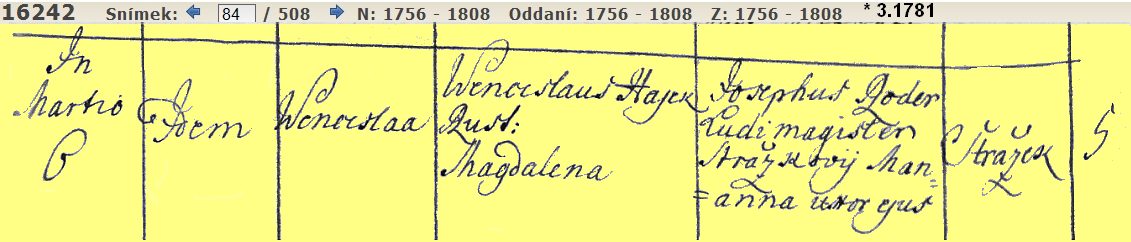 16242 Snímek: 84 / 508 N: 1756 - 1808 Oddaní: 1756 - 1808 Z: 1756 - 1808 * 3.1781
In
Martio
6
Idem
Wenceslaa
Wenceslaus Hajek
Rust:
Magdalena
Josephus Roder
Ludimagister
Stražkovij Man=
=anna uxor ejus
Stražek
5